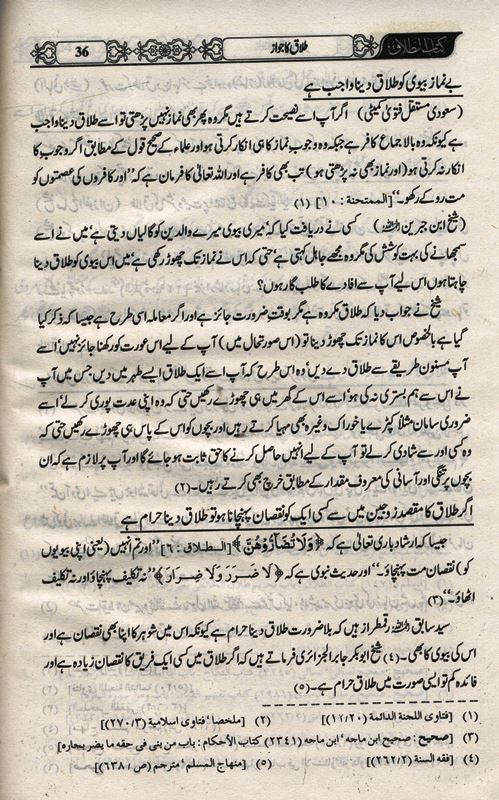 کتاب الطلاق
طلاق کا جواز
36
بے نماز بیوی کو طلاق دینا واجب ہے
(سعودی مستقل فتویٰ کمیٹی) اگر آپ اسے نصیحت کرتے ہیں مگر وہ پھر بھی نماز نہیں پڑھتی تو اسے طلاق دینا واجب
ہے کیونکہ وہ بالا جماع کافر ہے جبکہ وہ وجوبِ نماز کا ہی انکار کرتی ہو اور علماء کے صحیح قول کے مطابق اگر وجوب کا
انکار نہ کرتی ہو (اور نماز بھی نہ پڑھتی ہو) تب بھی کافر ہے اور اللہ تعالیٰ کا فرمان ہے کہ ''اور کافروں کی عصمتوں کو
مت روکے رکھو۔'' [الممتحنة : ۱۰] (۱)
(شیخ ابن جبرین رحمہ اللہ) کسی نے دریافت کیا کہ 'میری بیوی میرے والدین کو گالیاں دیتی ہے' میں نے اسے
سمجھانے کی بہت کوشش کی مگر وہ مجھے جاہل کہتی ہے' حتی کہ اس نے نماز تک چھوڑ رکھی ہے' میں اس بیوی کو طلاق دینا
چاہتا ہوں اس لیے آپ سے افادے کا طلب گار ہوں؟
شیخ نے جواب دیا کہ طلاق مکروہ ہے مگر بوقتِ ضرورت جائز ہے اور اگر معاملہ اسی طرح ہے جیسا کہ ذکر کیا
گیا ہے بالخصوص اس کا نماز تک چھوڑ دینا تو (اس صورتحال میں) آپ کے لیے اس عورت کو رکھنا جائز نہیں' اسے
آپ مسنون طریقے سے طلاق دے دیں' وہ اس طرح کہ آپ اسے ایک طلاق ایسے طہر میں دیں جس میں آپ
نے اس سے ہم بستری نہ کی ہو' اسے اس کے گھر میں ہی چھوڑے رکھیں حتی کہ وہ اپنی عدت پوری کر لے' اسے
ضروری سامان مثلاً کپڑے یا خوراک وغیرہ بھی مہیا کرتے رہیں اور بچوں کو اس کے پاس ہی چھوڑے رکھیں حتی کہ
وہ کسی اور سے شادی کر لے تو آپ کے لیے انہیں حاصل کرنے کا حق ثابت ہو جائے گا اور آپ پر لازم ہے کہ ان
بچوں پر تنگی اور آسانی کی معروف مقدار کے مطابق خرچ بھی کرتے رہیں۔ (۲)
اگر طلاق کا مقصد زوجین میں سے کسی ایک کو نقصان پہنچانا ہو تو طلاق دینا حرام ہے
جیسا کہ ارشادِ باری تعالیٰ ہے کہ ﴿وَلَا تُضَآرُّوهُنَّ﴾ [الطلاق : ٦] ''اور تم انہیں (یعنی اپنی بیویوں
کو) نقصان مت پہنچاؤ۔'' اور حدیثِ نبوی ہے کہ ﴿لَا ضَرَرَ وَلَا ضِرَارَ﴾ ''نہ تکلیف پہنچاؤ اور نہ تکلیف
اٹھاؤ۔'' (۳)
سید سابق رحمہ اللہ رقمطراز ہیں کہ بلا ضرورت طلاق دینا حرام ہے کیونکہ اس میں شوہر کا اپنا بھی نقصان ہے اور
اس کی بیوی کا بھی۔ (٤) شیخ ابوبکر جابر الجزائری فرماتے ہیں کہ اگر طلاق میں کسی ایک فریق کا نقصان زیادہ ہے اور
فائدہ کم تو ایسی صورت میں طلاق حرام ہے۔ (٥)
(۱) [فتاوى اللجنة الدائمة (۱۲/۲۰)] (۲) [ملخصا ' فتاوى اسلامية (۲۷۰/۳)]
(۳) [صحيح : صحيح ابن ماجه ' ابن ماجه (۲۳٤۱) كتاب الأحكام : باب من بنى فى حقه ما يضر بجاره]
(٤) [فقه السنة (۲٦۲/۲)] (٥) [منهاج المسلم ' مترجم (ص/٦۳۸)]